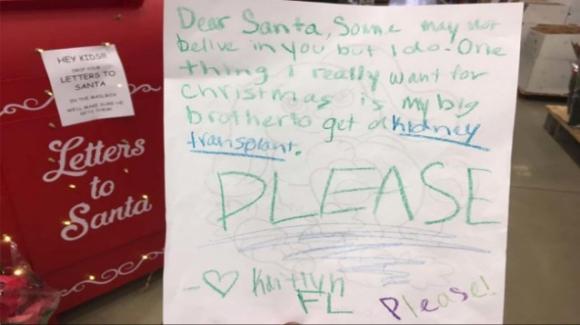 HEY KIDS!!!
DROP YOUR
LETTERS TO
SANTA
IN THE MAILBOX
WE'LL MAKE SURE HE
GETS THEM!
Letters
to
Santa
Dear Santa, Some may not
belive in you but I do. One
thing I really want for
christmas is my big
brother to get a kidney
transplant.
PLEASE
- ♡ Kaitlyn
FL
Please!